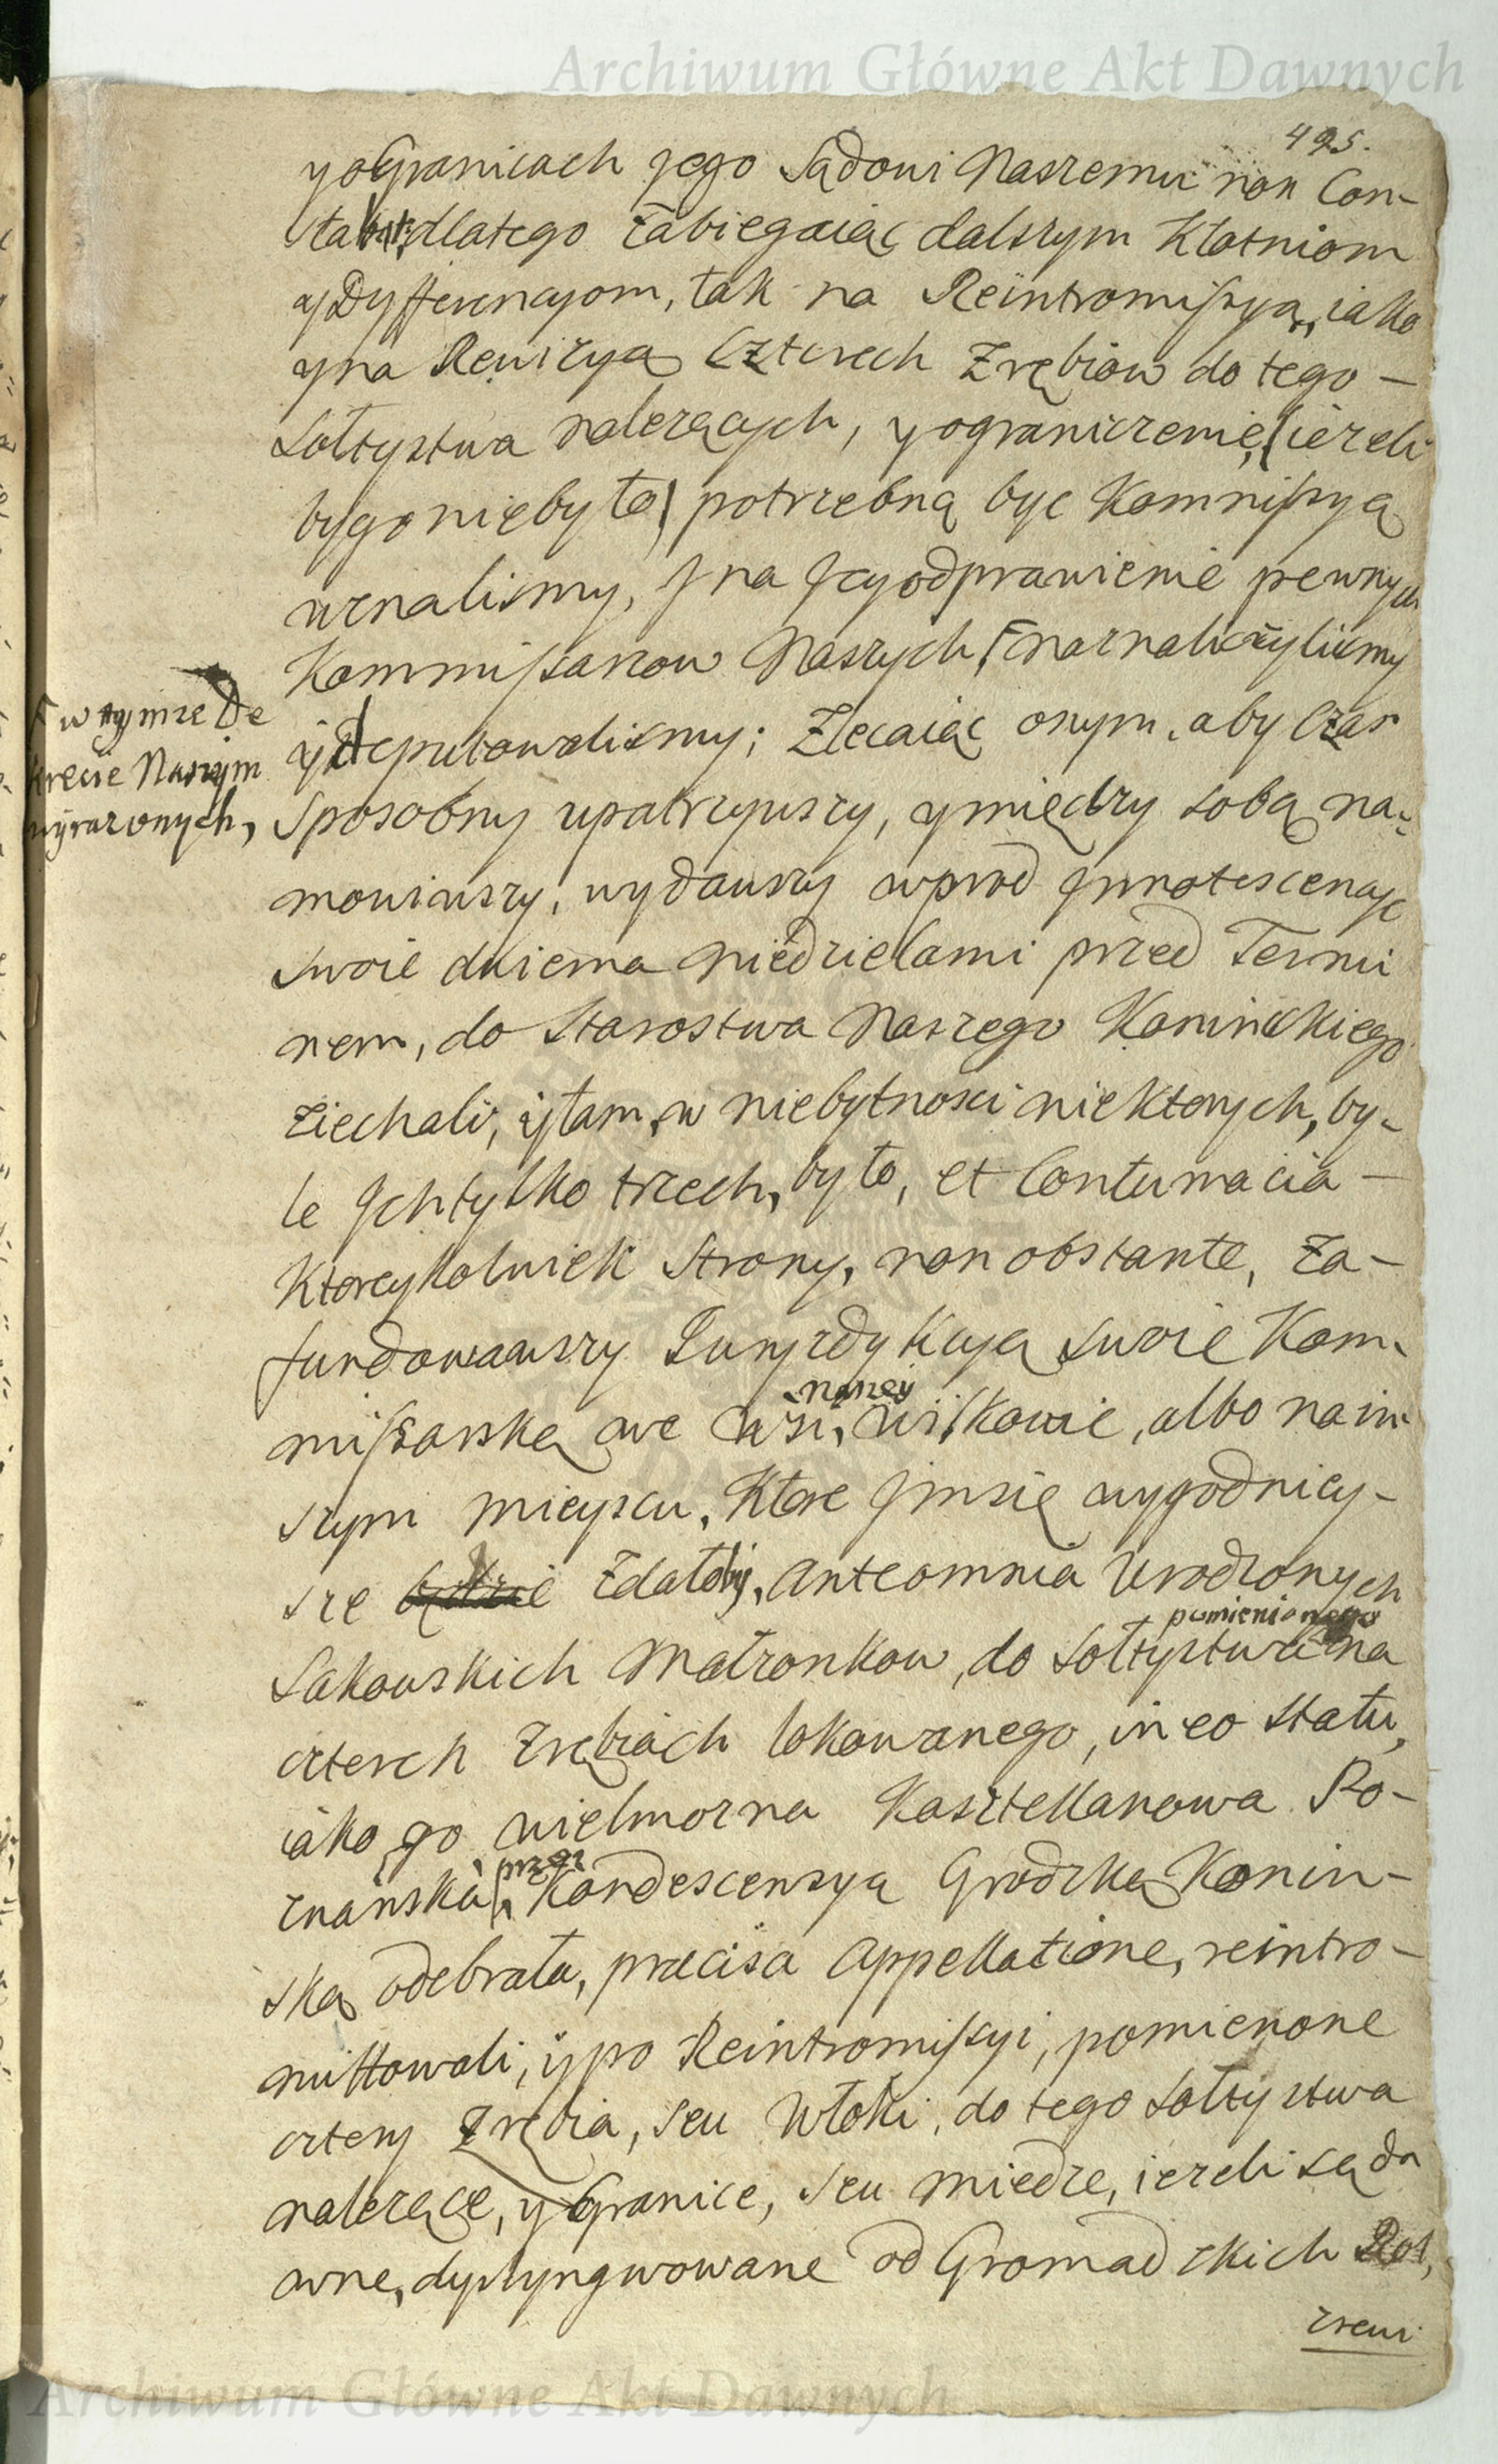 Archiwum Główne Akt Dawnych
495.
y o Granicach jego Sądowi Naszemu non Con-
stabit, dlatego zabiegaiąc dalszym Kłotniom
y Dyfferencyom, tak na Reintromissyą, iako
y na Rewizyą Czterech Zrębiow do tego –
Sołtystwa należących, y ograniczenie, (ieżeli
by go nie było) potrzebną byc Kommissyą
uznalismy, J na Jey odprawienie pewnych
Kommissarzow Naszych, naznaliczylismy
w tymze De
krecie Naszym
wyrazonych,
y deputowalismy; Zlecaiąc onym, aby Czas
Sposobny upatrzywszy, y między sobą na-
mowiwszy, wydawszy wprod Jnnotescencye
swoie dwiema Niedzielami przed Termi
nem, do Starostwa Naszego Koninskiego
ziechali, y tam, w niebytnosci niektorych, by-
le Jch tylko trzech, było, et Contumacia –
Ktoreykolwiek Strony, non obstante, Za-
fundowawszy Jurysdykcyą swoie Kom-
missarską we Wsi, naszey Wilkowie, albo na in-
szym mieyscu, Ktore Jm się wygodniey-
sze będzie zdałoby, ante omnia Urodzonych
Sakowskich Małzonkow, do Sołtystwa pomienionego na
czterech Zrębiach lokowanego, in eo statu,
iako go Wielmozna Kasztellanowa Po-
znanska, przez Kondescensyą Grodzką Konin-
ską odebrała, praecisa Appellatione, reintro-
mittowali, y po Reintromissyi, pomienione
cztery Zrębia, seu Włoki, do tego Sołtystwa
nalezące, y Granice, seu miedze, iezeli są da
wne, dystyngwowane od Gromadzkich Rol,
Archiwum Główne Akt Dawnych